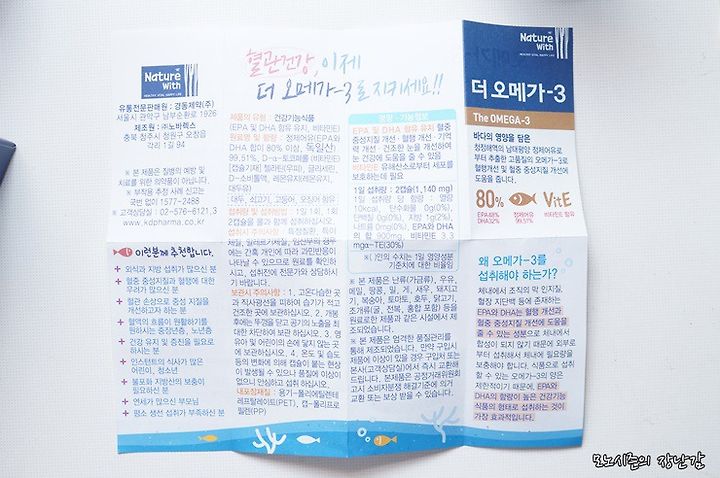 Nature
With
HEALTHY VITAL HAPPY LIFE
유통전문판매원 : 경동제약(주)
서울시 관악구 남부순환로 1926
제조원 : ㈜노바렉스
충북 청주시 청원구 오창읍
각리 1길 94
※ 본 제품은 질병의 예방 및
치료를 위한 의약품이 아닙니다.
※ 부작용 추정 사례 신고는
국번 없이 1577-2488
※ 고객상담실 : 02-576-6121,3
www.kdpharma.co.kr
이런분께 추천합니다.
+ 외식과 지방 섭취가 많으신 분
+ 혈중 중성지질과 혈행에 대한
우려가 많으신 분
+ 혈관 손상으로 중성 지질을
개선하고자 하는 분
+ 혈액의 흐름이 원활하기를
원하시는 중장년층, 노년층
+ 건강 유지 및 증진을 필요로
하시는 분
+ 인스턴트의 식사가 많은
어린이, 청소년
+ 불포화 지방산의 보충이
필요하신 분
+ 연세가 많으신 부모님
+ 평소 생선 섭취가 부족하신 분
혈관건강, 이제
더 오메가-3로 지키세요!!
제품의 유형 : 건강기능식품
(EPA 및 DHA 함유 유지, 비타민E)
원료명 및 함량 : 정제어유(EPA와
DHA 합이 80%이상, 독일산)
99.51%, D-α-토코페롤 (비타민E)
(캡슐기제) 젤라틴(우피), 글리세린,
D-소비톨액, 레몬유지(레몬유지,
대두유)
(대두, 쇠고기, 고등어, 오징어 함유)
섭취량 및 섭취방법 : 1일 1회, 1회
2캡슐을 물과 함께 섭취하십시오.
섭취시 주의사항 : 특정질환, 특이
체질, 알레르기체질, 임산부의 경우
에는 간혹 개인에 따라 과민반응이
나타날 수 있으므로 원료를 확인하
시고, 섭취전에 전문가와 상담하시
기 바랍니다.
보관시 주의사항 : 1. 고온다습한 곳
과 직사광선을 피하여 습기가 적고
건조한 곳에 보관하십시오, 2. 개봉
후에는 뚜껑을 닫고 공기의 노출을 최대
한 차단하여 보관 하십시오, 3. 영
유아 및 어린이의 손에 닿지 않는 곳
에 보관하십시오, 4. 온도 및 습도
등의 변화에 의해 캡슐이 붙는 현상
이 발생될 수 있으나 품질에 이상이
없으니 안심하고 섭취 하십시오.
내포장재질 : 용기-폴리에틸렌테
레프탈레이트(PET), 캡-폴리프로
필렌(PP)
영양 · 기능정보
EPA 및 DHA 함유 유지: 혈중
중성지질 개선 · 혈행 개선 · 기억
력 개선 · 건조한 눈을 개선하여
눈 건강에 도움을 줄 수 있음
비타민E: 유해산소로부터 세포를
보호하는데 필요
1일 섭취량 : 2캡슐(1,140 mg)
1일 섭취량 당 함량 : 열량
10kcal, 탄수화물 0g(0%),
단백질 0g(0%), 지방 1g(2%),
나트륨 0mg(0%), EPA와 DHA의
합 900mg, 비타민E 3.3
mgα-TE(30%)
※( )안의 수치는 1일 영양성분
기준치에 대한 비율임
※ 본 제품은 난류(가금류), 우유,
메밀, 땅콩, 밀, 게, 새우, 돼지고
기, 복숭아, 토마토, 호두, 닭고기,
조개류(굴, 전복, 홍합 포함) 등을
원료로한 제품과 같은 시설에서 제
조되었습니다.
※ 본 제품은 엄격한 품질관리를
통해 제조되었습니다. 만약 구입시
제품에 이상이 있을 경우 구입처 또는
본사(고객상담실)에서 즉시 교환해
드립니다. 본제품은 공정거래위원회
고시 소비자분쟁 해결기준에 의거
교환 또는 보상 받을 수 있습니다.
Nature
With
HEALTHY VITAL HAPPY LIFE
더 오메가-3
The OMEGA-3
바다의 영양을 담은
청정해역의 남태평양 정제어유로
부터 추출한 고품질의 오메가-3로
혈행개선 및 혈중 중성지질 개선에
도움을 줍니다.
80%
VitE
EPA 48%
DHA 32%
정제어유
99.51%
비타민E 함유
왜 오메가-3를
섭취해야 하는가?
체내에서 조직의 막 인지질,
혈장 지단백 등에 존재하는
EPA와 DHA는 혈행 개선과
혈중 중성지질 개선에 도움을
줄 수 있는 성분으로 체내에서
합성이 되지 않기 때문에 외부로
부터 섭취해서 체내에 필요량을
보충해야 합니다. 식품으로 섭취
할 수 있는 오메가-3의 양은
제한적이기 때문에, EPA와
DHA의 함량이 높은 건강기능
식품의 형태로 섭취하는 것이
가장 효과적입니다.
모노시즌의 장난감